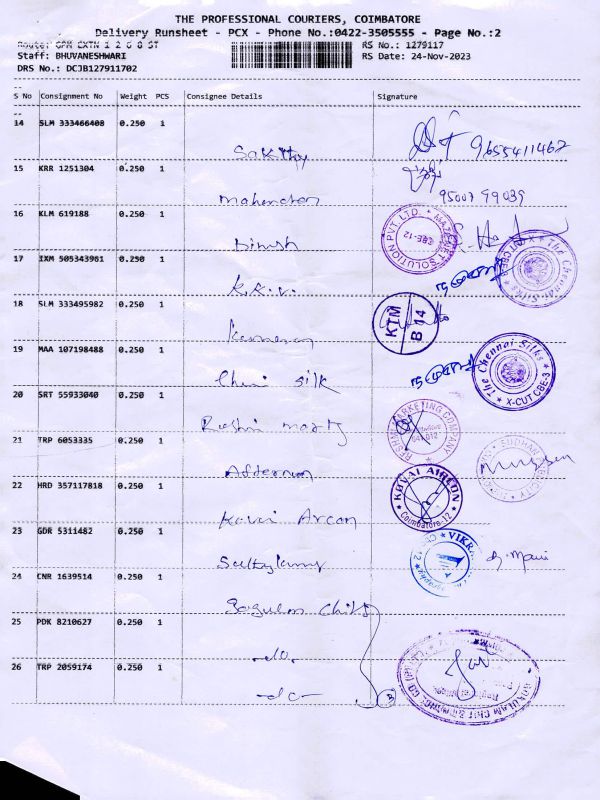 THE PROFESSIONAL COURIERS, COIMBATORE
Delivery Runsheet - PCX - Phone No.:0422-3505555 - Page No.:2
Route: GPM EXTN 1 2 6 8 ST
RS No.: 1279117
Staff: BHUVANESHWARI
RS Date: 24-Nov-2023
DRS No.: DCJB127911702
S No Consignment No Weight PCS Consignee Details Signature
14 SLM 333466408 0.250 1
Sakthy 9655411462
15 KRR 1251304 0.250 1
Mahendran 95007 99039
16 KLM 619188 0.250 1
Dinesh
17 IXM 505343961 0.250 1
K.K.V.
18 SLM 333495982 0.250 1
KTM B 14
19 MAA 107198488 0.250 1
Cheni silk
The Chennai Silks
X-CUT CBE-3
20 SRT 55933040 0.250 1
21 TRP 6053335 0.250 1
22 HRD 357117818 0.250 1
KOVAI AIRCON
Coimbatore-12
Kovai Arcon
23 GDR 5311482 0.250 1
VIKRA
24 CNR 1639514 0.250 1
Gogulam Chits
25 PDK 8210627 0.250 1
-do-
26 TRP 2059174 0.250 1
-do-